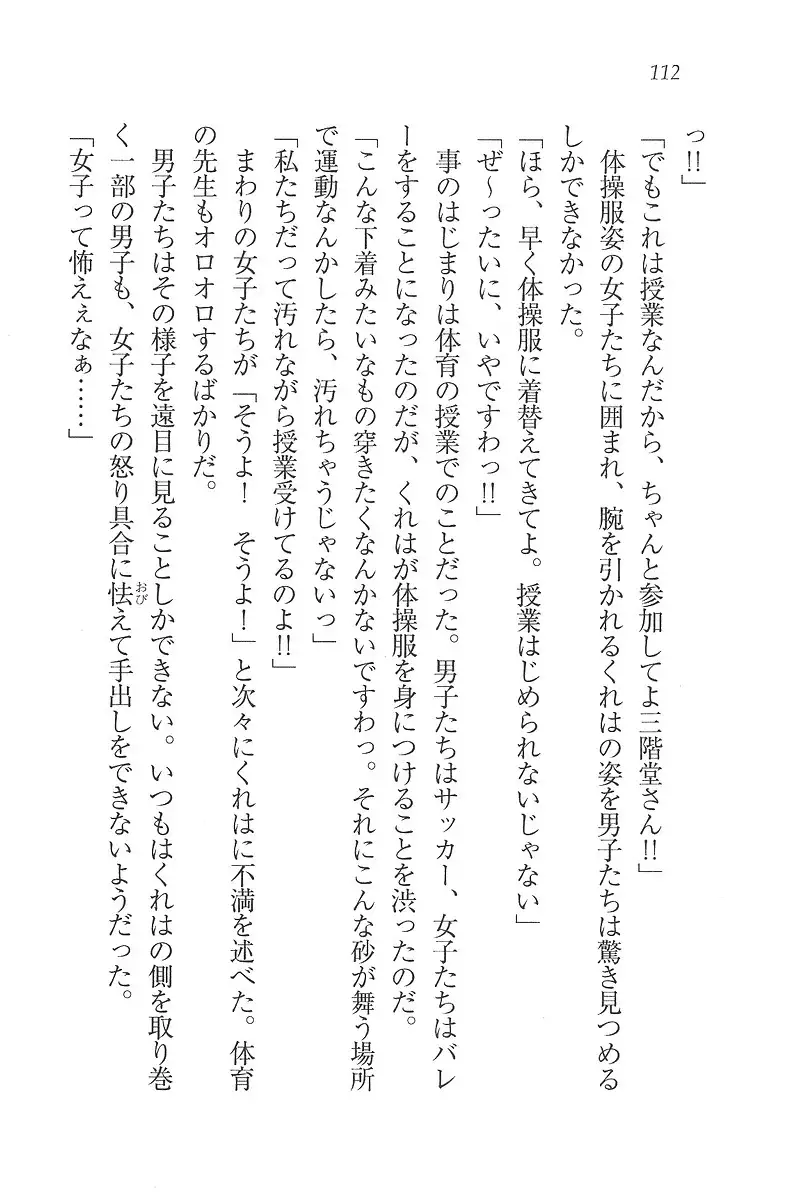 112
っ!!」
「でもこれは授業なんだから、ちゃんと参加してよ三階堂さん!!」
　体操服姿の女子たちに囲まれ、腕を引かれるくれはの姿を男子たちは驚き見つめる
しかできなかった。
「ほら、早く体操服に着替えてきてよ。授業はじめられないじゃない」
「ぜ〜ったいに、いやですわっ!!」
　事のはじまりは体育の授業でのことだった。男子たちはサッカー、女子たちはバレ
ーをすることになったのだが、くれはが体操服を身につけることを渋ったのだ。
「こんな下着みたいなもの穿きたくなんかないですわっ。それにこんな砂が舞う場所
で運動なんかしたら、汚れちゃうじゃないっ」
「私たちだって汚れながら授業受けてるのよ!!」
　まわりの女子たちが「そうよ！　そうよ！」と次々にくれはに不満を述べた。体育
の先生もオロオロするばかりだ。
　男子たちはその様子を遠目に見ることしかできない。いつもはくれはの側を取り巻
く一部の男子も、女子たちの怒り具合に怯えて手出しをできないようだった。
おび
「女子って怖えぇなぁ……」